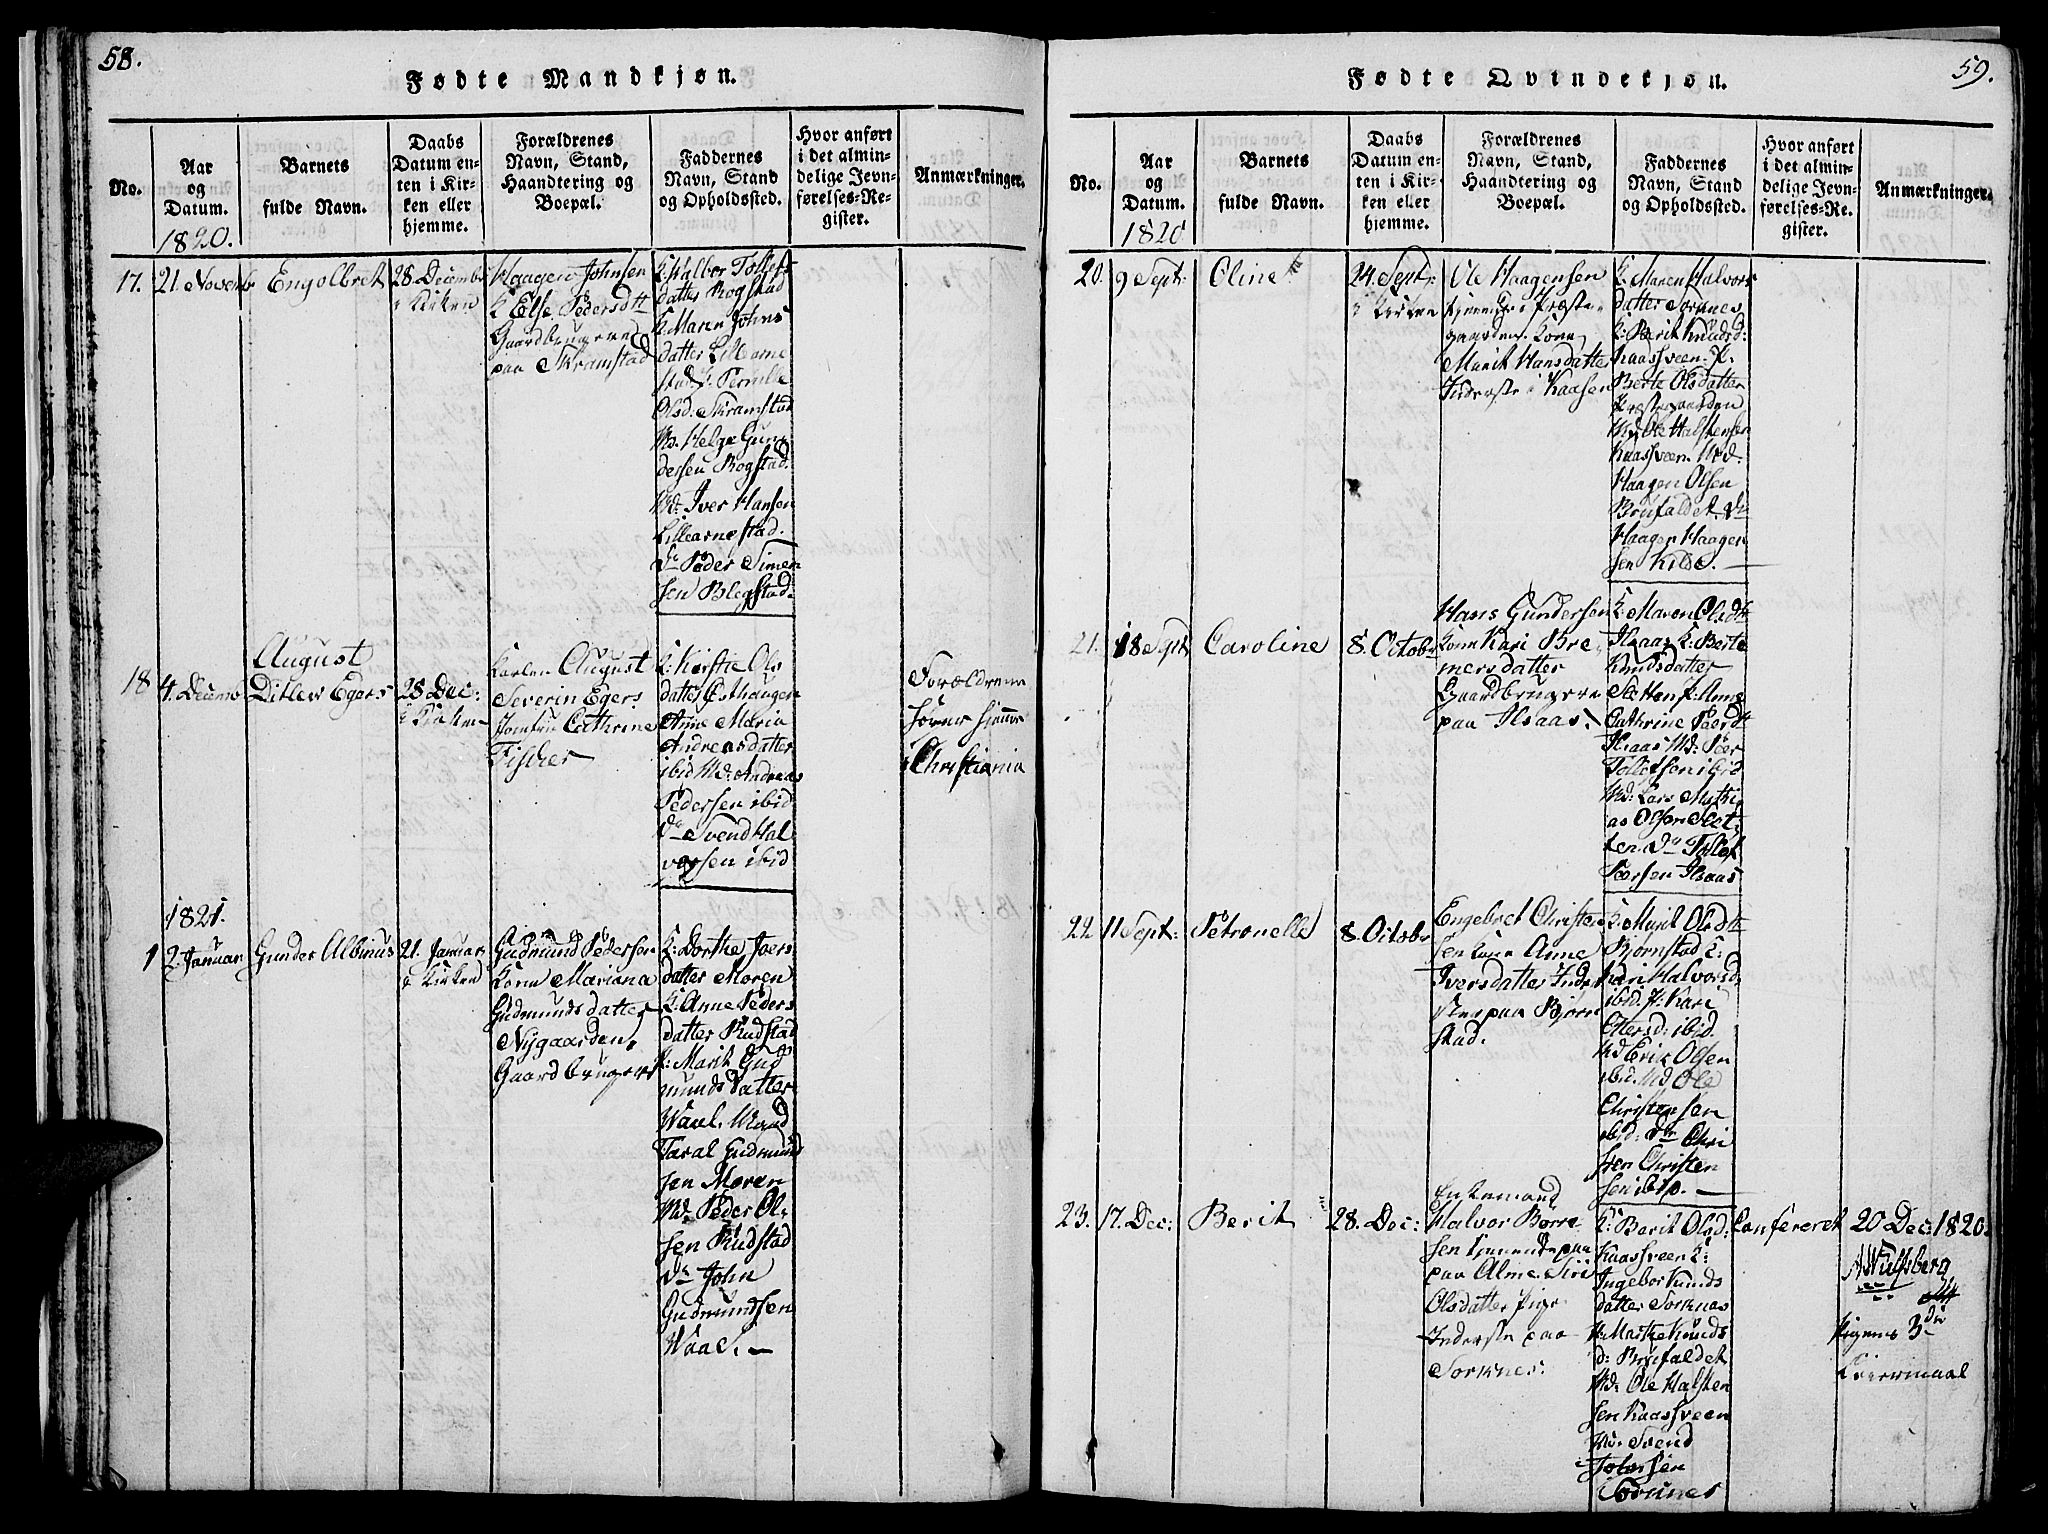 58.
Fødte Mandkjøn.
No.
Aar
og
Datum.
1820.
Barnets
fulde Navn.
Daabs
Datum en-
ten i Kir-
ken eller
hjemme.
Forældrenes
Navn, Stand,
Haandtering og
Boepæl.
Faddernes
Navn, Stand
og Opholdssted.
Hvor anført
i det almin-
delige Jevn-
førelses-Re-
gister.
Anmærkninger.
17.
21. Novembr
Engelbret
28 Decembr
i Kirken
Haagen Johnsen
K Else Pedersdtt
Gaardbrugerne
paa Skramstad
K: Walbor Tollefs
datter Rogstad
K: Maren Johns
datter Lillearne
stad P: Pernille
Olsd: Skramstad
Md. Helge Gun
dersen Rogstad.
Md: Iver Hansen
Lillearnestad.
Do Peder Simen
sen Blegstad:
18
4. Decemb
August
Ditlew Egers
28 Dec:
i Kirken
Karlen August
Severin Egers
Jomfru Cathrine
Fischer
K: Kirstie Ols
datter Østhaugen
Anne Maria
Andreasdatter
ibid Md: Andreas
Pedersen ibid
Do Svend Hal
vorsen ibid
Forældrene
hører hjemme
i Christiania
1821.
1
2. Januar
Gunder Albinus
21. Januar
i Kirken
Gudmund Pedersen
Kone Mariana
Gudmundsdatter
Nygaarden,
Gaardbrugere
K: Dorthe Joers
datter Moren
K: Anne Peders
datter Rudstad
P: Marit Gud
mundsdatter
Waal. Mand
Taral Gudmund
sen Moren
Md: Peder Ol-
sen Rudstad
Do John
Gudmundsen
Waal. —
59.
Fødte Qvindekjøn.
No.
Aar
og
Datum.
1820
Barnets
fulde Navn.
Daabs
Datum en-
ten i Kir-
ken eller
hjemme.
Forældrenes
Navn, Stand,
Haandtering og
Boepæl.
Faddernes
Navn, Stand
og Opholdssted.
Hvor anført
i det almin-
delige Jevn-
førelses-Re-
gister.
Anmærkninger.
20.
9 Sept:
Oline
24. Sept:
i Kirken
Ole Haagensen
tjenende i Præste-
gaarden. Kone
Marit Hansdatter
Inderste i Kaasen
K: Maren Halvors
datter Sorknes
K: Berit Knudsd:
Kaasveen. P:
Berte Olsdatter
Præstegaarden
Md Ole Halstensen
Kaasveen. Md.
Haagen Olsen
Brufaldet. Do
Haagen Haagen
sen Kilde. —
21.
18 Sept
Caroline
8. Octobr
Hans Gundersen
Kone Kari Bre
mersdatter
Gaardbrugere
paa Ilsaas.
K: Maren Olsdtt
Ilsaas K: Berte
Knudsdatter
Sletten P: Anne
Cathrine Peerdtt
Ilsaas Md: Peer
Tollefsen ibid
Md: Lars Mathi
as Olsen Slet
ten. Do Tollef
Peersen Ilsaas
22.
11 Sept:
Petronelle
8. Octobr
Engebret Christen
sen Kone Anne
Iversdatter Inder
ster paa Bjørn
stad.
K: Marit Olsdtt
Bjørnstad K:
Kari Halvorsd:
ibid. P: Kari
Ellersd: ibid.
Md Erik Olsen
ibid. Md Ole
Christensen
ibid: Do Chri
sten Christen
sen ibid. —
23.
17. Dec:
Berit
28. Dec:
Enkemand
Halvor Børre
sen tjenende paa
paa Alme. Siri
Olsdatter Pige
Inderste paa
Sorknes:
K: Berit Olsd:
Kaasveen K:
Ingebor Knuds
datter Sorknes
P: Marthe Knuds
d: Brufaldet
Md: Ole Halsten
sen Kaasveen
Md: Svend
Tolersen
Sorknes
Confereret
20 Dec: 1820.
A Wulfsberg
Pigens 3die
Leiermaal